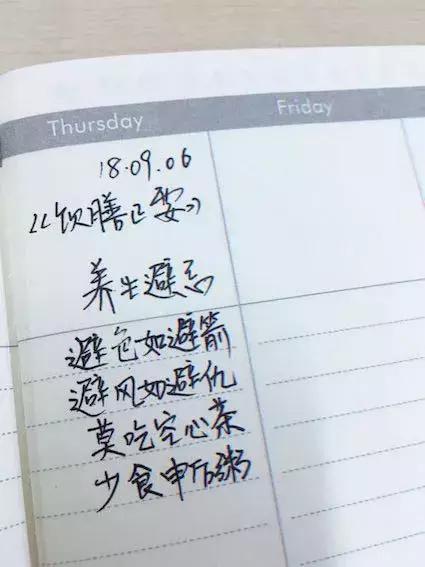 Thursday
Friday
18.09.06
《饮膳正要》
养生避忌
避色如避箭
避风如避仇
莫吃空心茶
少食申后粥